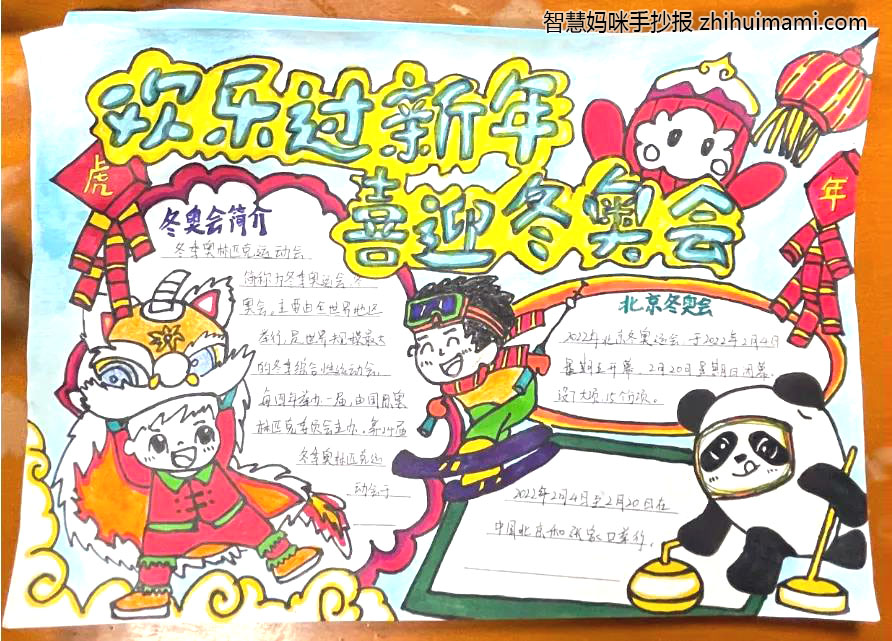 智慧妈咪手抄报 zhihuimami.com
欢乐过新年
喜迎冬奥会
虎
年
冬奥会简介
冬季奥林匹克运动会
简称为冬季奥运会、冬
奥会,主要由全世界地区
举行,是世界规模最大
的冬季综合性运动会,
每四年举办一届,由国际奥
林匹克委员会主办,第24届
冬季奥林匹克运
动会于
北京冬奥会
2022年北京冬奥运会,于2022年2月4日
星期五开幕,2月20日星期日闭幕,
设7大项,15个分项。
2022年2月4日至2月20日在
中国北京和张家口举行,